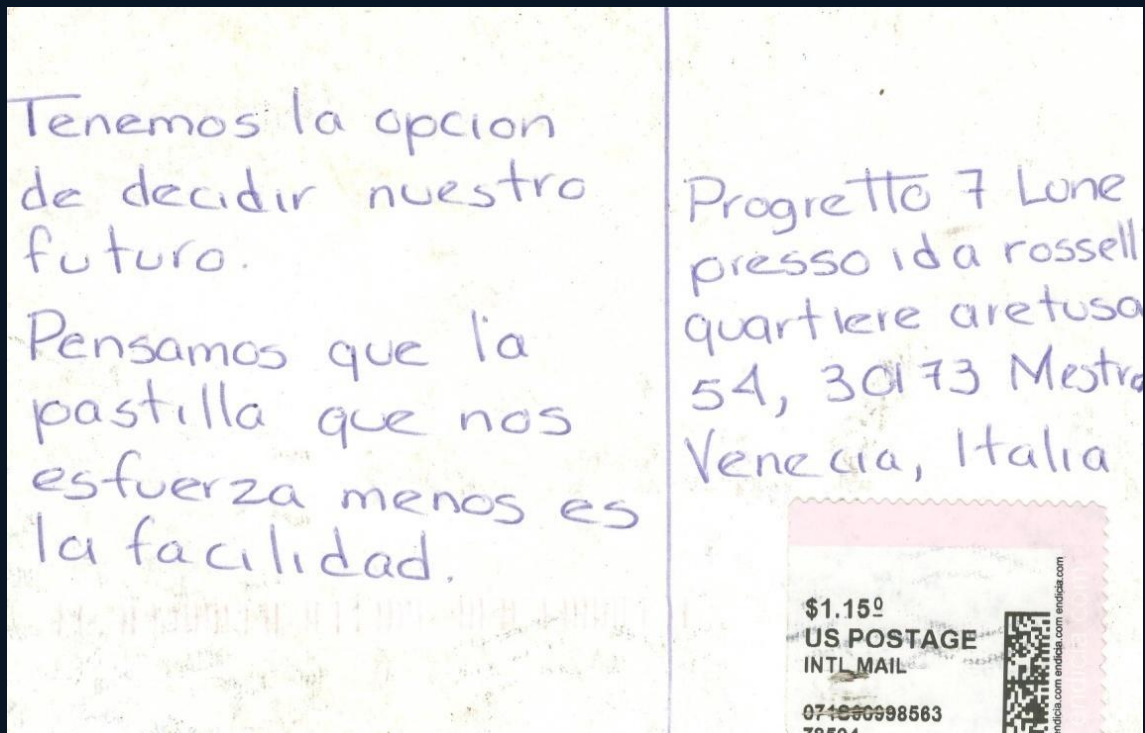 Tenemos la opcion
de decidir nuestro
futuro.
Pensamos que la
pastilla que nos
esfuerza menos es
la facilidad.
Progretto 7 Lune
presso ida rossell
quartiere aretusa
54, 30173 Mestre
Venecia, Italia
$1.15⁰
US POSTAGE
INTL MAIL
endicia.com endicia.com